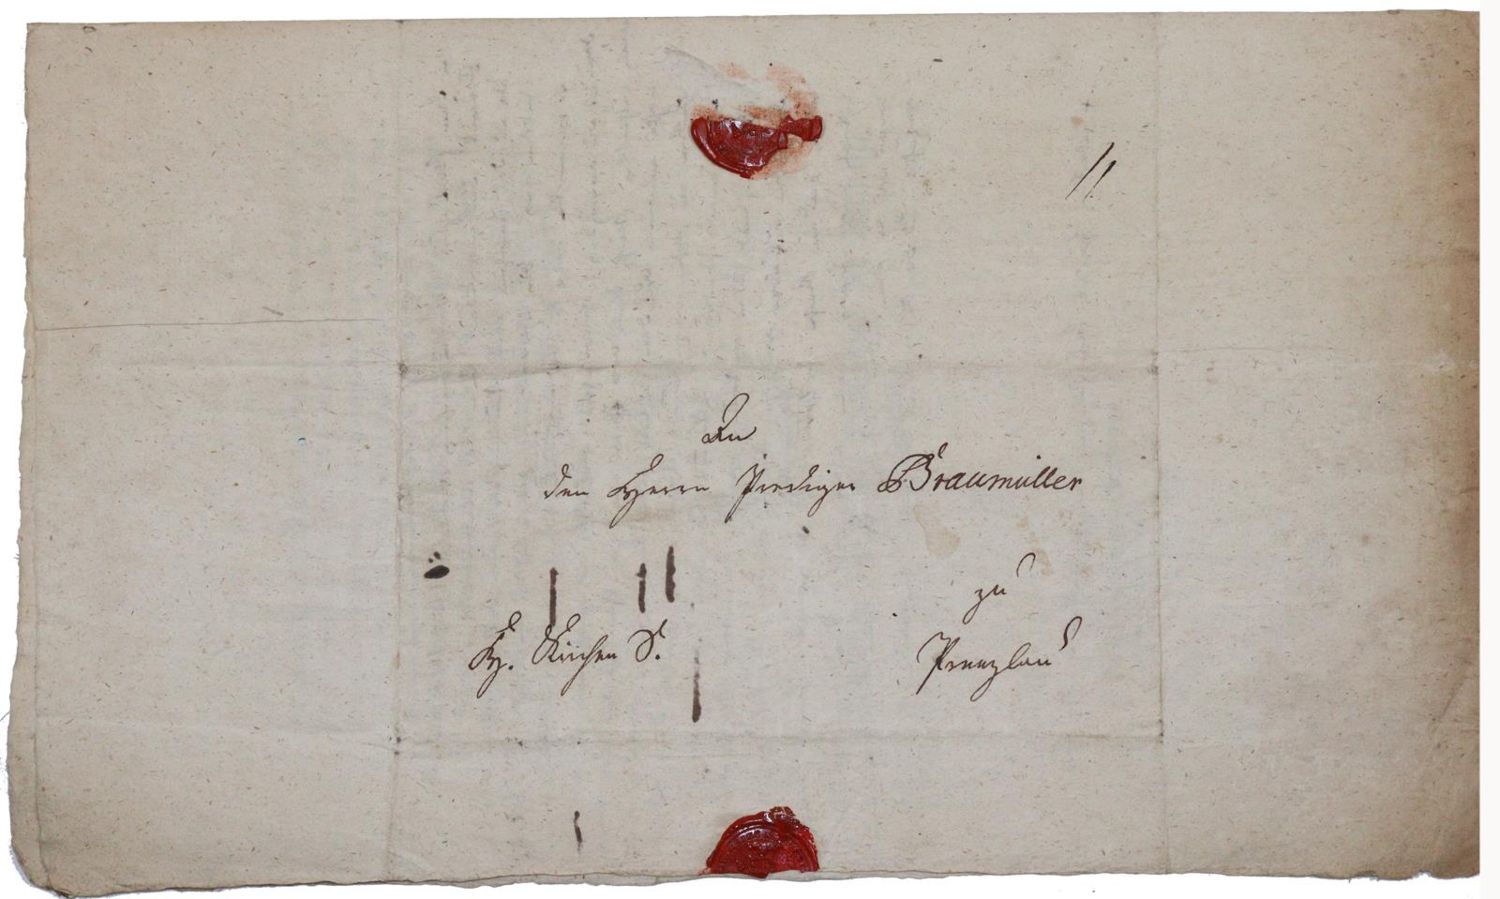 An
den Herrn Prediger Braumüller
zu
Kg. Kirchen S. Prenzlau